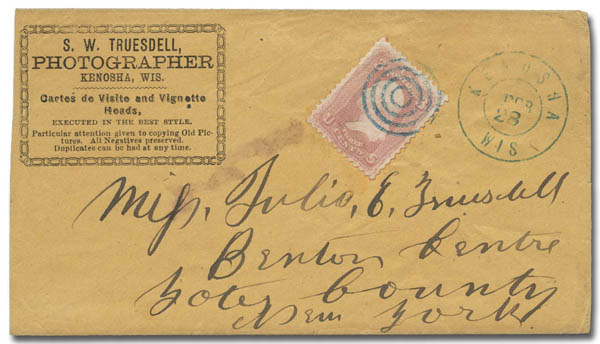 S. W. TRUESDELL,
PHOTOGRAPHER
KENOSHA, WIS.
Cartes de Visite and Vignette
Heads,
EXECUTED IN THE BEST STYLE.
Particular attention given to copying Old Pic-
tures. All Negatives preserved.
Duplicates can be had at any time.
U S
CENTS
KENOSHA
28
WIS
Miss, Julia, E, Truesdell
Benton Centre
Yates County
New York